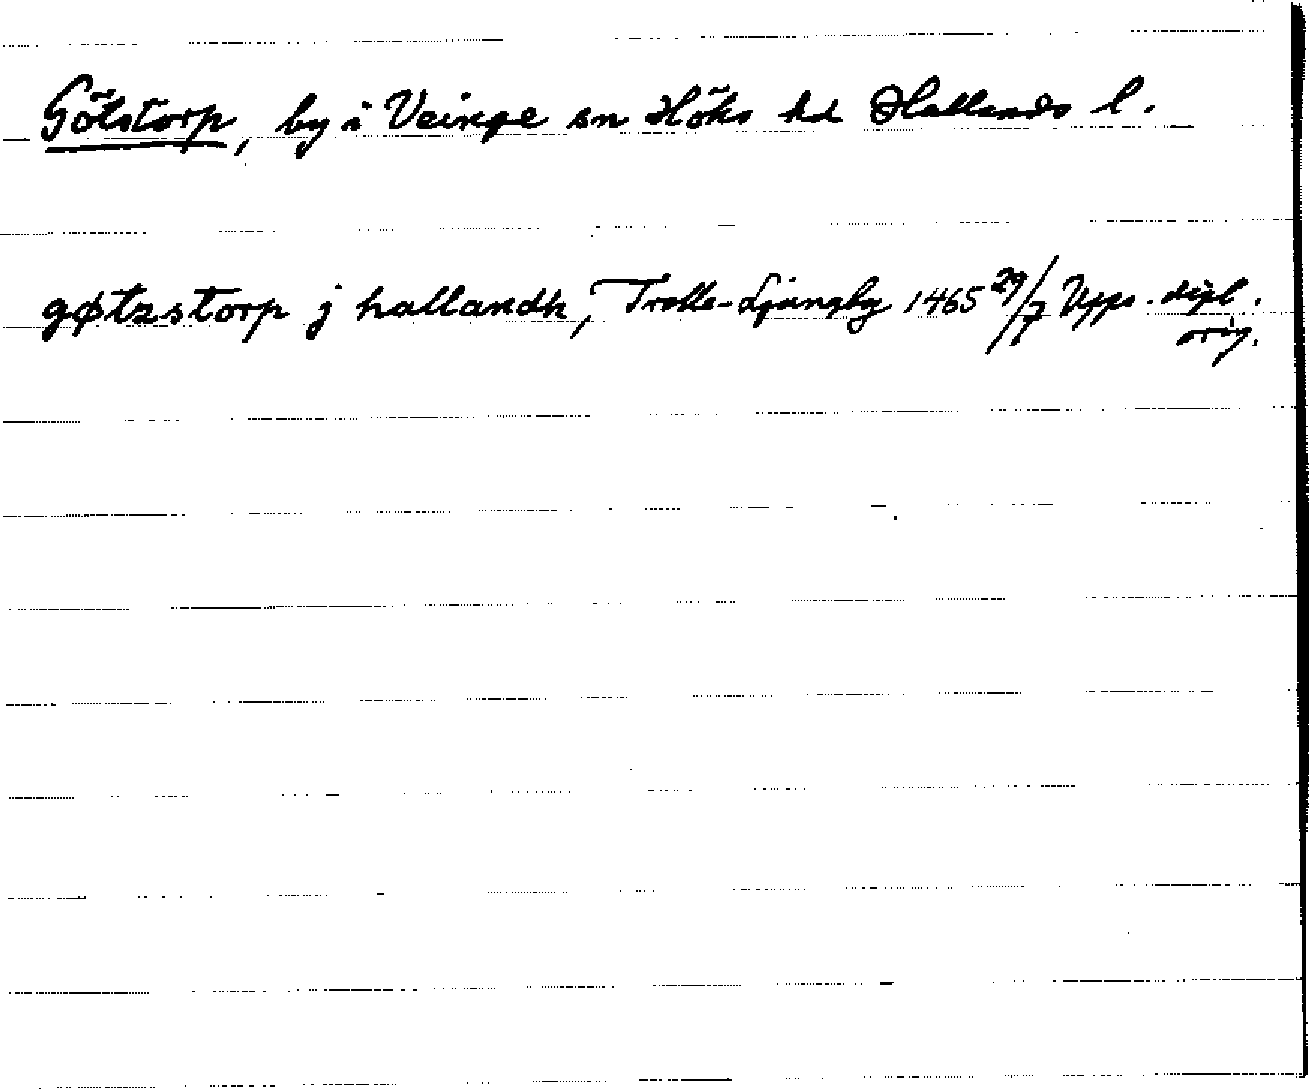 Götstorp, by i Veinge sn Höks hd Hallands l.
gøtzstorp j hallandh, Trolle-Ljungby 1465 29/7 Upps. dipl.
orig.